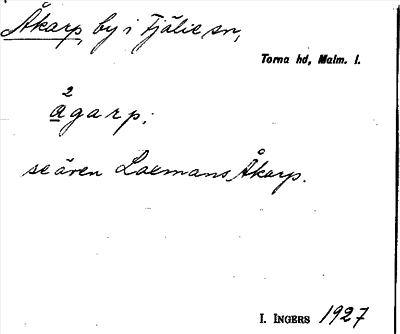 Åkarp, by i Fjälie sn,
Torna hd, Malm. l.
2
ågarp;
se även Laemans Åkarp.
I. INGERS 1927